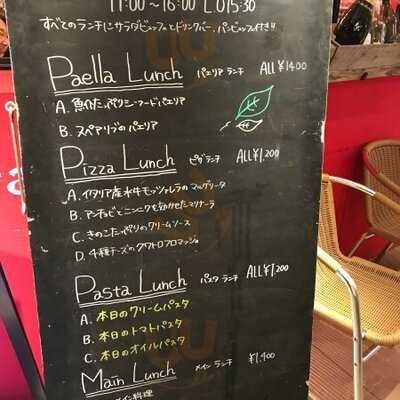 11:00〜16:00 L.O15:30
すべてのランチにサラダビュッフェとドリンクバー、パンビュッフェ付き!!
Paella Lunch パエリア ランチ ALL ¥1400
A. 魚介たっぷりシーフードパエリア
B. スペアリブのパエリア
Pizza Lunch ピザランチ ALL ¥1,200
A. イタリア産水牛モッツァレラのマルゲリータ
B. アンチョビとニンニクを効かせたマリナーラ
C. きのこたっぷりのクリームソース
D. 4種チーズのクワトロフロマッジョ
Pasta Lunch パスタ ランチ ALL ¥1,200
A. 本日のクリームパスタ
B. 本日のトマトパスタ
C. 本日のオイルパスタ
Main Lunch メイン ランチ ¥1,400
イン料理